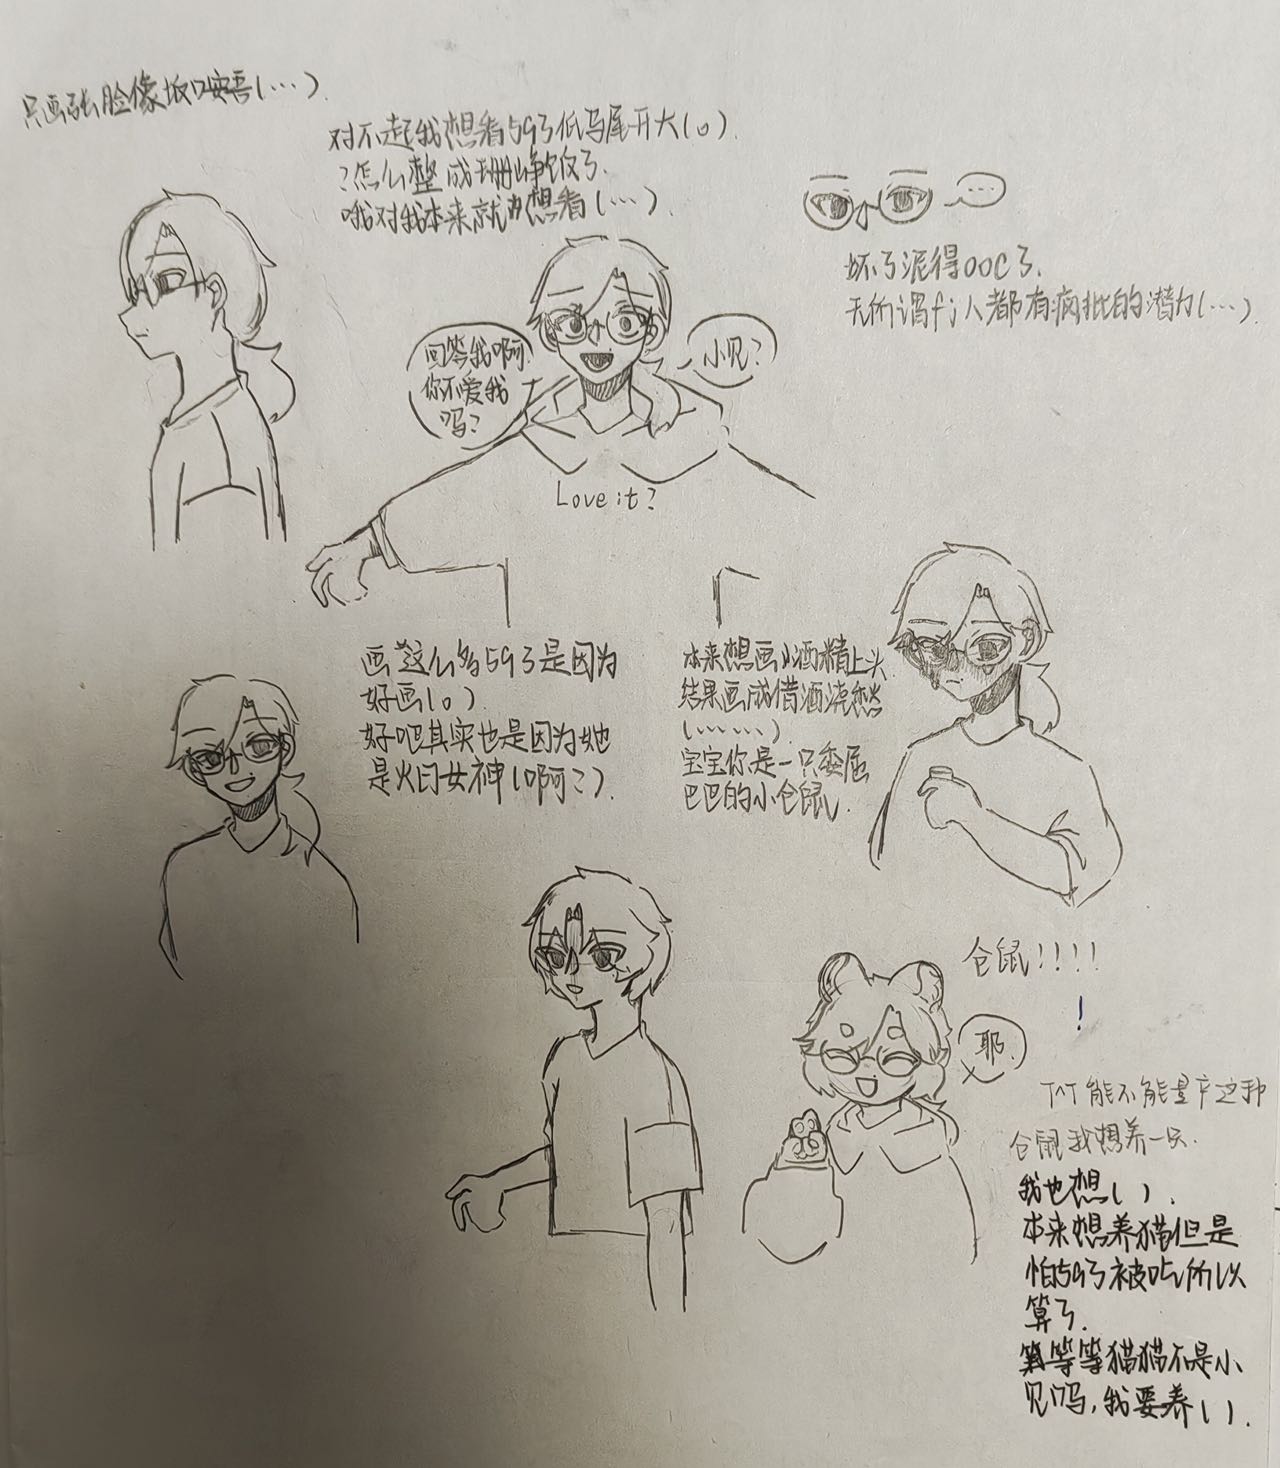 只画张脸像坂口安吾(…)
对不起我想看593低马尾开大(。).
?怎么整成珊净饭了.
哦对我本来就想看(…).
…
坏了泥得OOC了.
无所谓fj人都有疯批的潜力(…).
回答我啊.
你不爱我
吗?
小见?
Love it?
画这么多593是因为
好画(。).
好吧其实也是因为她
是女神(啊?).
本来想画小酒精上头
结果画成借酒浇愁
(……).
宝宝你是一只委屈
巴巴的小仓鼠.
仓鼠!!!!
!
耶.
T^T能不能量产这种
仓鼠我想养一只.
我也想().
本来想养猫但是
怕593被吃所以
算了.
等等猫猫不是小
见吗,我要养().